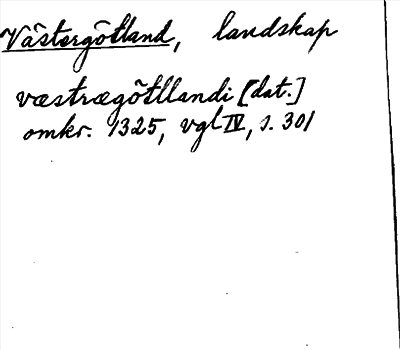 Västergötland, landskap
væstrægötllandi [dat.]
omkr. 1325, vgl IV, s. 301